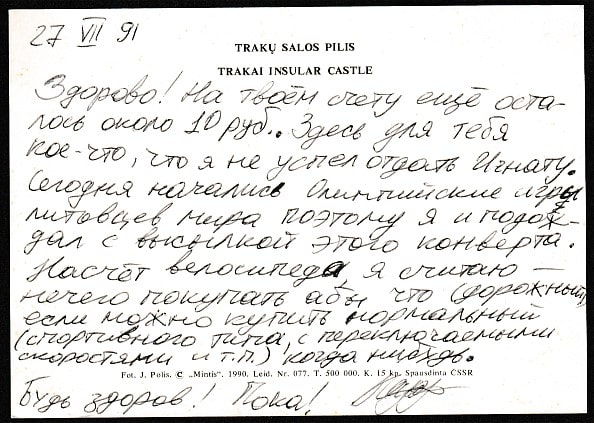 27 VII 91
TRAKŲ SALOS PILIS
TRAKAI INSULAR CASTLE
Здорово! На твоём счету ещё оста-
лось около 10 руб.. Здесь для тебя
кое-что, что я не успел отдать Игнату.
Сегодня начались Олимпийские игры
литовцев мира поэтому я и подож-
дал с высылкой этого конверта.
Насчёт велосипеда, я считаю —
нечего покупать абы что (дорожный)
если можно купить нормальный
(спортивного типа, с переключаемыми
скоростями и т.п.) когда нибудь.
Fot. J. Polis. © „Mintis". 1990. Leid. Nr. 077. T. 500 000. K. 15 kp. Spausdinta ČSSR
Будь здоров! Пока!